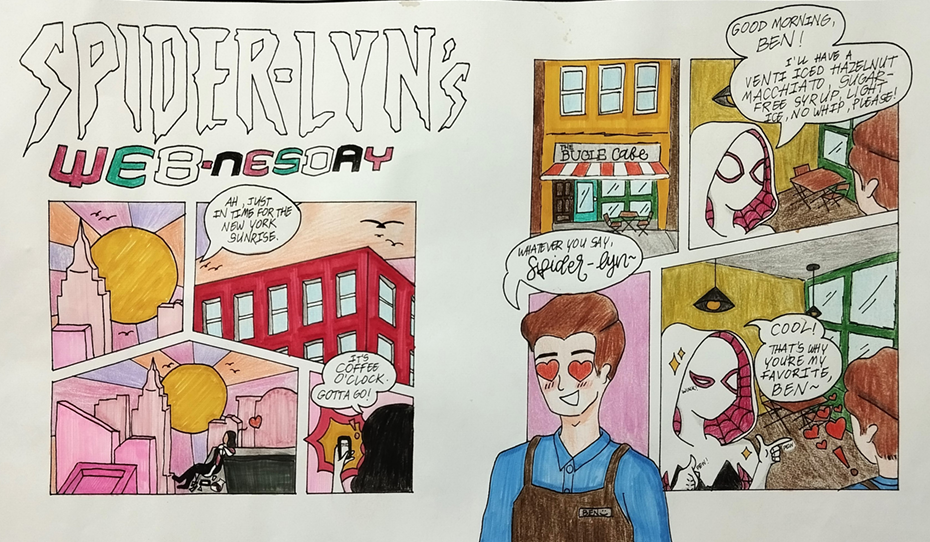 SPIDER-LYN's
WEB-nESDAY
AH, JUST
IN TIME FOR THE
NEW YORK
SUNRISE.
IT'S
COFFEE
O'CLOCK.
GOTTA GO!
THE
BUGLE Cafe
GOOD MORNING,
BEN!
I'LL HAVE A
VENTI ICED HAZELNUT
MACCHIATO, SUGAR-
FREE SYRUP, LIGHT
ICE, NO WHIP, PLEASE!
WHATEVER YOU SAY,
Spider-lyn~
BEN
WINK!
COOL!
THAT'S WHY
YOU'RE MY
FAVORITE,
BEN~
PEW!
PEW!